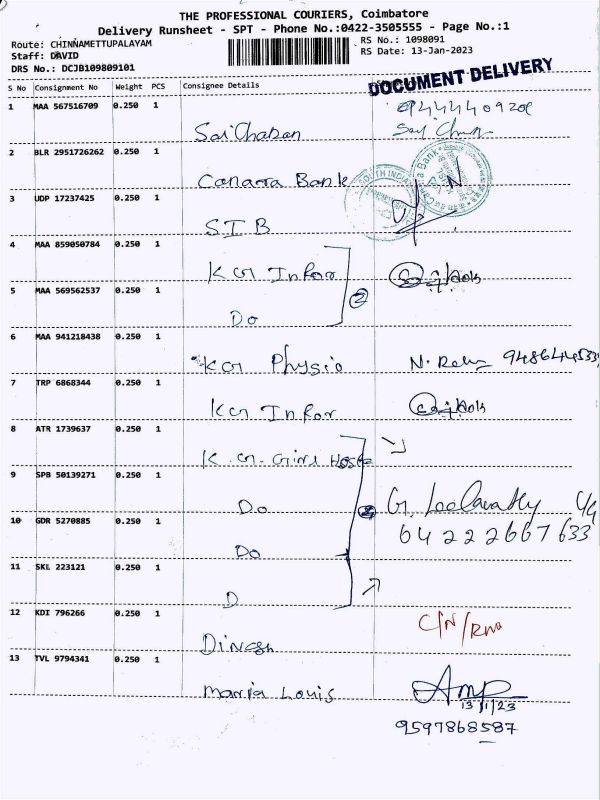 THE PROFESSIONAL COURIERS, Coimbatore
Delivery Runsheet - SPT - Phone No.:0422-3505555 - Page No.:1
Route: CHINNAMETTUPALAYAM
RS No.: 1098091
Staff: DAVID
RS Date: 13-Jan-2023
DRS No.: DCJB109809101
DOCUMENT DELIVERY
S No Consignment No Weight PCS Consignee Details
1 MAA 567516709 0.250 1
Sai Charan
2 BLR 2951726262 0.250 1
Canara Bank
3 UDP 17237425 0.250 1
S.I.B
4 MAA 859050784 0.250 1
KG Infor
5 MAA 569562537 0.250 1
Do
2
6 MAA 941218438 0.250 1
KG Physio
7 TRP 6868344 0.250 1
KG Infor
8 ATR 1739637 0.250 1
K.G. Girls
9 SPB 50139271 0.250 1
Do
10 GDR 5270885 0.250 1
Do
64222667633
11 SKL 223121 0.250 1
D
12 KDI 796266 0.250 1
Dinesh
13 TVL 9794341 0.250 1
Maria Louis
13/1/23
9597868587